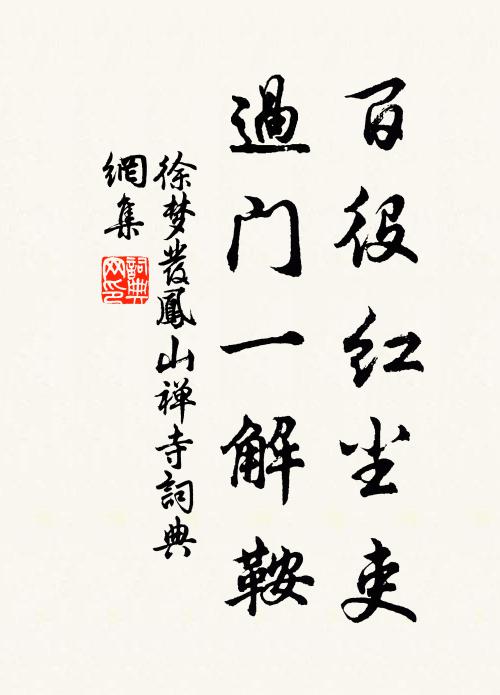 百役红尘吏
過门一解鞍
徐梦發鳳山禅寺詞典
網集
詞典
网印